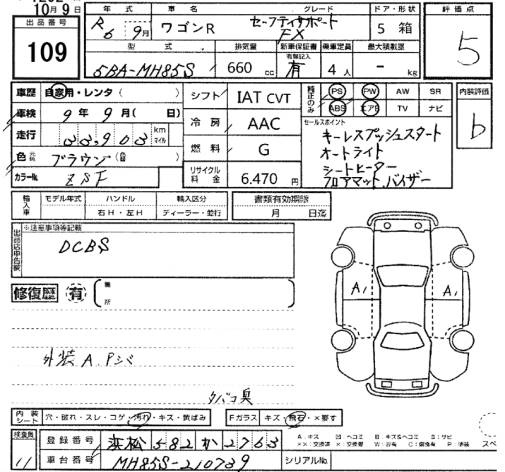 10月9日
出品番号
109
年式 車名 グレード ドア・形状 評価点
R6 9月 ワゴンR セーフティサポート FX 5 箱 5
型式 排気量 新車保証書 乗車定員 最大積載量
有無記入
5BA-MH85S 660cc 有 4人 - kg
車歴 自家用・レンタ( ) シフト IAT CVT 純正のみ PS PW AW SR 内装評価
車検 9年9月( 日) 冷房 AAC ABS エアB TV ナビ b
走行 33,903 km マイル 燃料 G セールスポイント
キーレスプッシュスタート
オートライト
シートヒーター
フロアマット、バイザー
色 元色 ブラウン( ) リサイクル料金 6.470円
カラーNo. ZSF
輸入車 モデル年式 ハンドル 輸入区分 書類有効期限
右H・左H ディーラー・並行 月 日迄
※注意事項等記載
DCBS
修復歴 有 ( 箇所 )
A1 A1
外装A、Pシミ
タバコ臭
内装シート 穴・破れ・スレ・コゲ・汚れ・キズ・黄ばみ Fガラス キズ・飛石・×要す
検査員 11
登録番号 浜松582か2763
車台番号 MH85S-210739 シリアルNo.